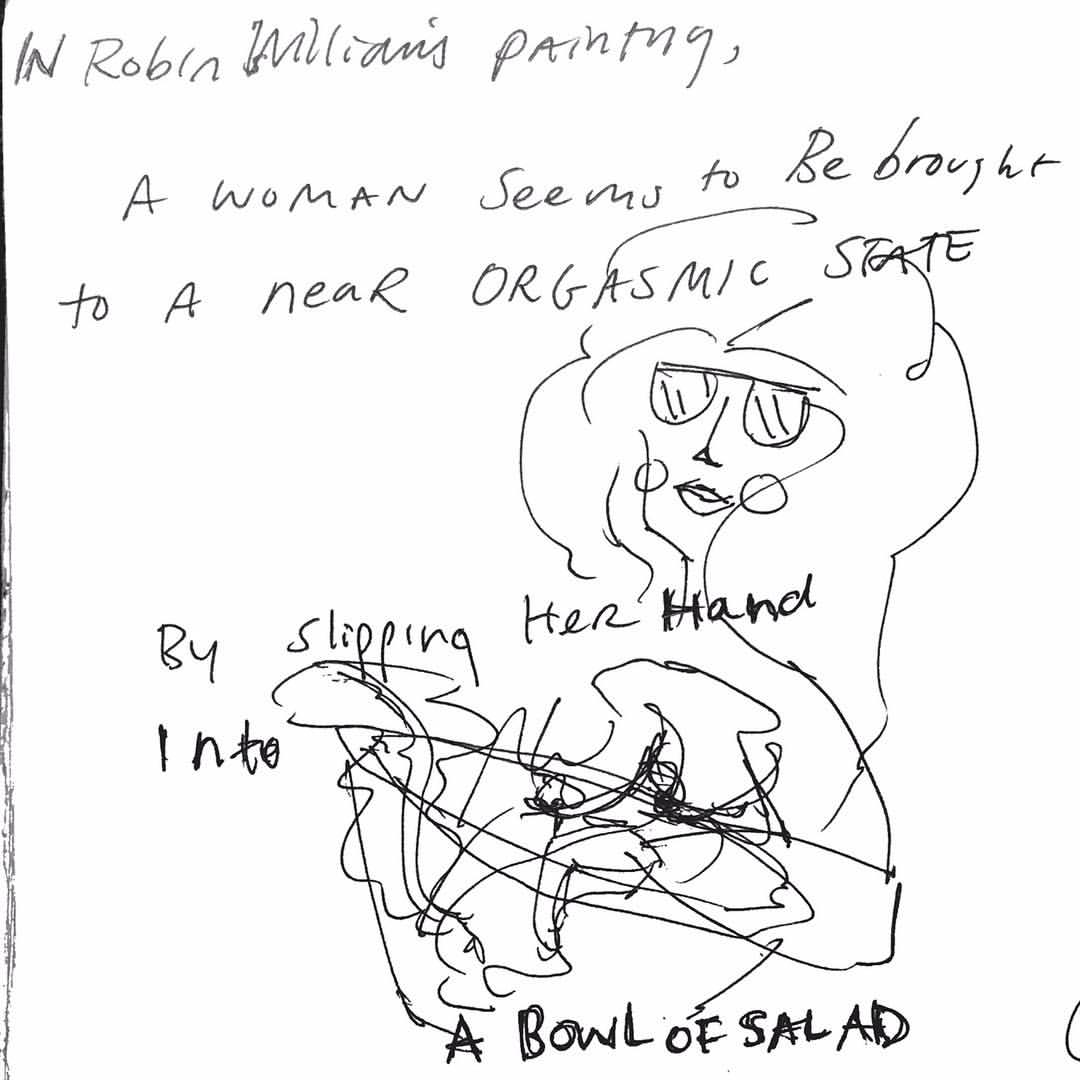 IN Robin Williams PAINTING,
A WOMAN Seems to Be brought
to A neaR ORGASMIC STATE
By slipping HeR Hand
Into
A BOWL OF SALAD